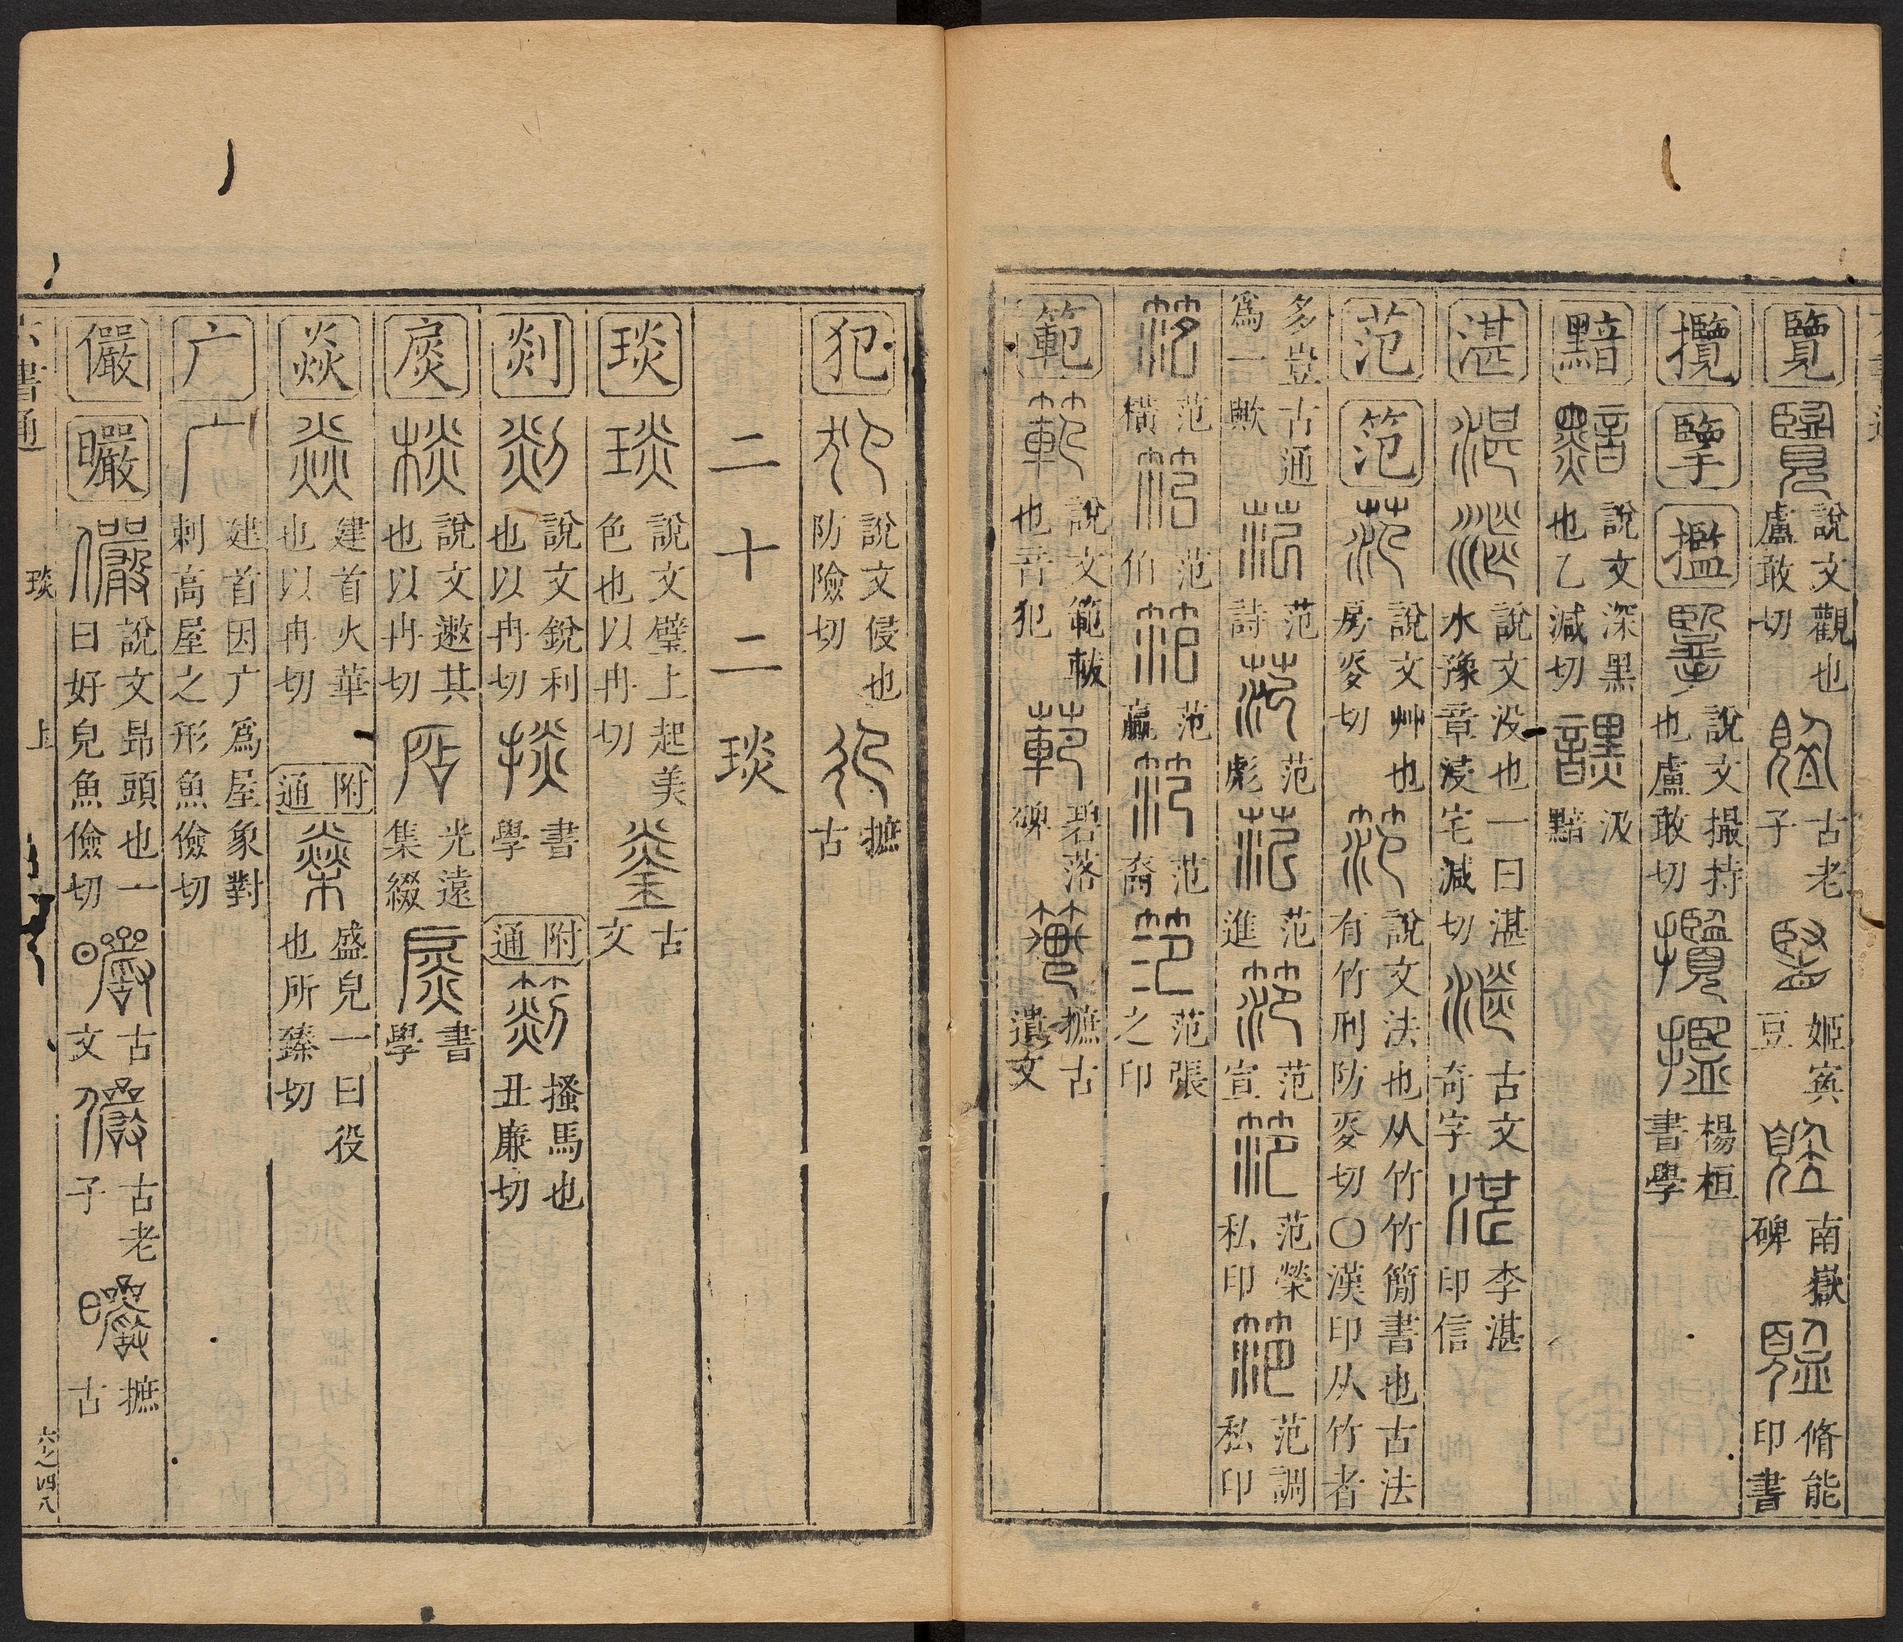 覽 說文觀也盧敢切 古老子 姬寏豆 南嶽碑 脩能印書
攬 擥 㩜 說文撮持也盧敢切 楊桓書學
黯 說文深黑也乙減切 汲黯
湛 說文没也一曰湛水豫章浸宅減切 古文奇字 李湛印信
范 笵 說文艸也房夌切 說文法也从竹竹簡書也古法有竹刑防夌切〇漢印从竹者
多豈古通爲一歟 范詩 范彪 范進 范宣 范榮私印 范調私印
范橫 范伯 范贏 范裔 范張之印
範 說文範軷也音犯 碧落碑 摭古遺文
犯 說文侵也防險切 摭古
二十二琰
琰 說文璧上起美色也以冉切 古文
剡 說文銳利也以冉切 書學 附通 搔馬也丑廉切
扊 說文遬其也以冉切 光遠集綴 書學
焱 建首火華也以冉切 附通 盛皃一曰役也所臻切
广 建首因广爲屋象對刺高屋之形魚儉切
儼 曮 說文昂頭也一曰好皃魚儉切 古文 古老子 摭古
六書通 琰 上 六之四八